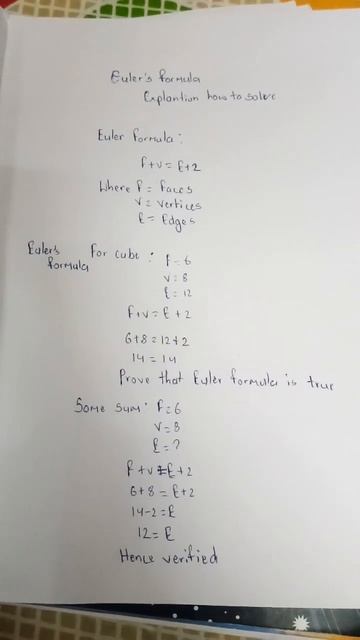 Euler's formula
Explantion how to solve
Euler formula:
F+V=E+2
Where F= Faces
V= Vertices
E= Edges
Euler's formula For cube: F=6
V=8
E=12
F+V=E+2
6+8=12+2
14=14
Prove that Euler formula is true
Some sum: F=6
V=8
E=?
F+V=E+2
6+8=E+2
14-2=E
12=E
Hence verified